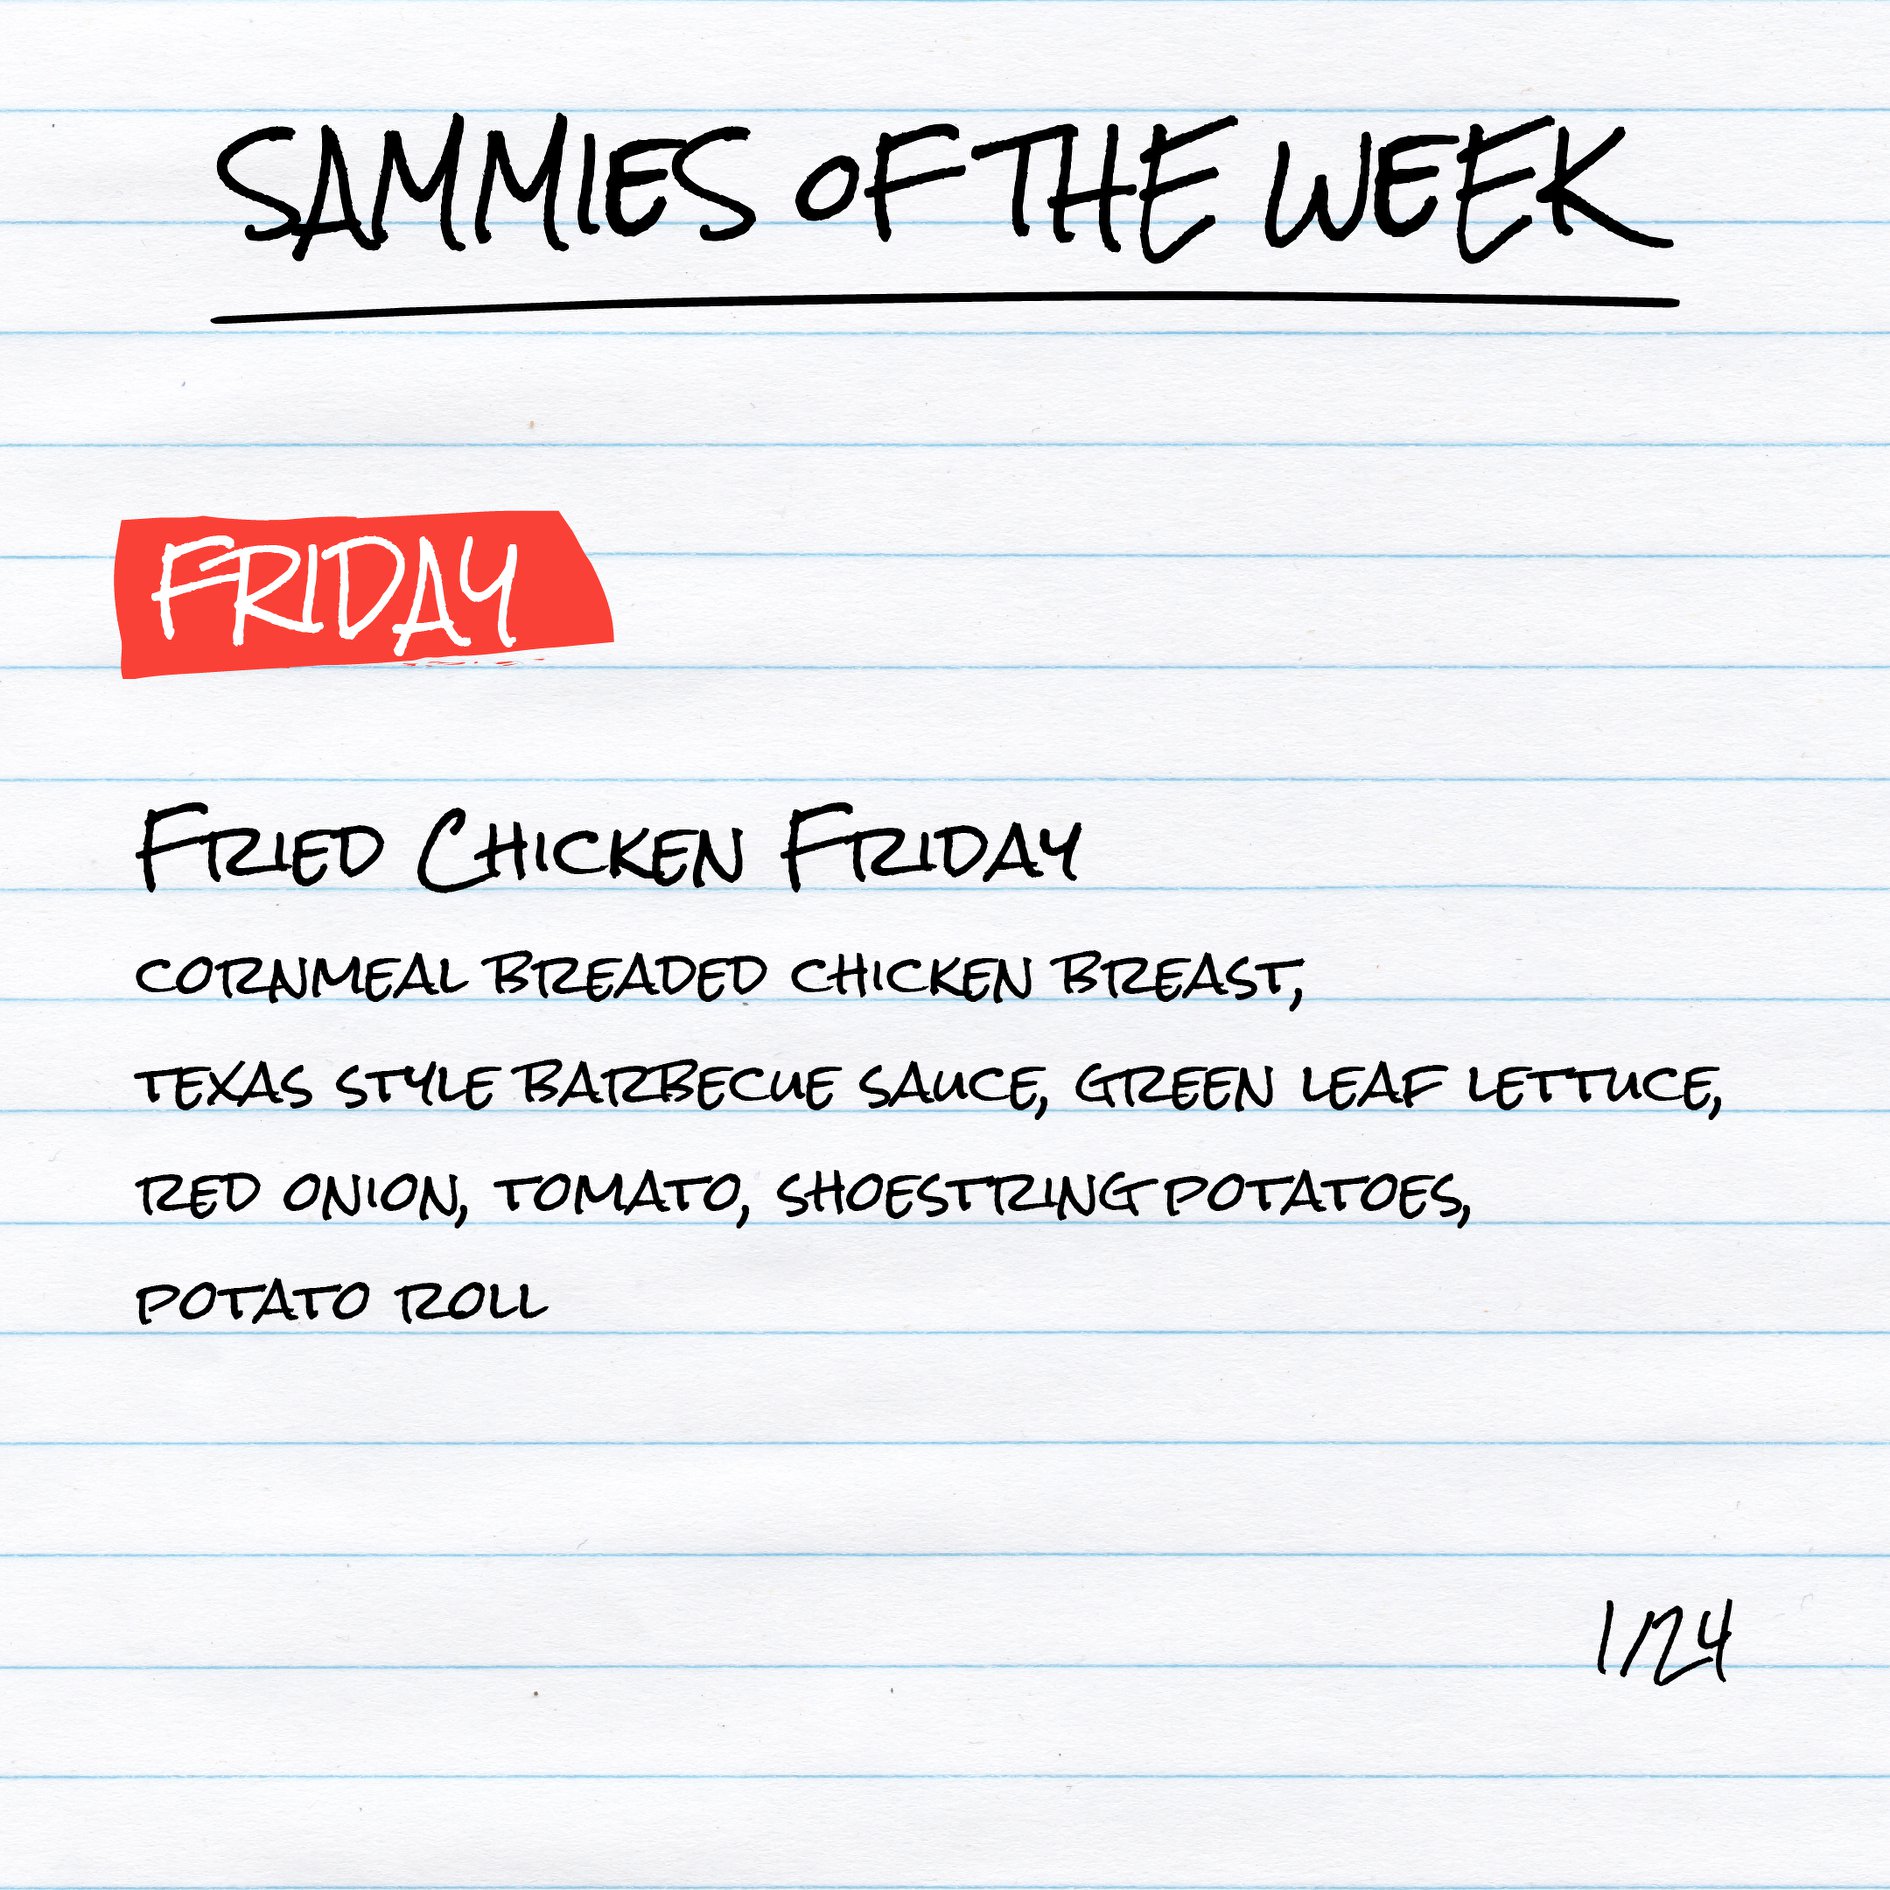 SAMMIES OF THE WEEK
FRIDAY
FRIED CHICKEN FRIDAY
CORNMEAL BREADED CHICKEN BREAST,
TEXAS STYLE BARBECUE SAUCE, GREEN LEAF LETTUCE,
RED ONION, TOMATO, SHOESTRING POTATOES,
POTATO ROLL
1/24